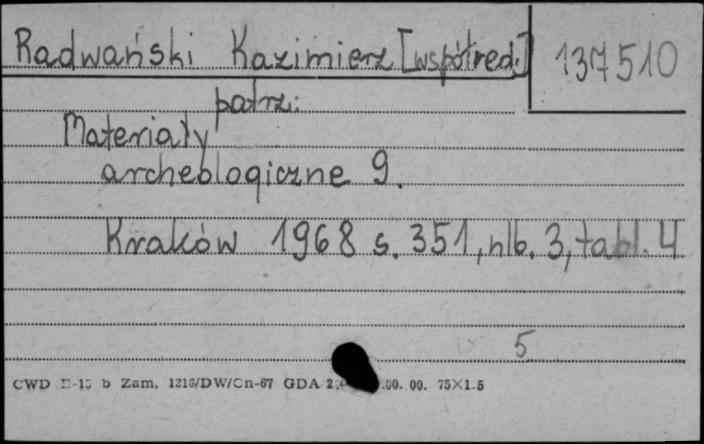 Radwański Kazimierz [współred.] 137510
patrz:
Materiały
archeologiczne 9.
Kraków 1968 s. 351, nlb. 3, tabl. 4
5
CWD b Zam. 1216/DW/Cn-67 GDA 00. 00. 75×1.5